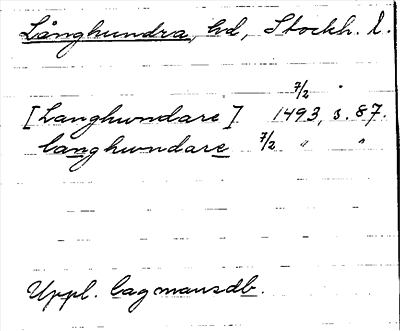 Långhundra, hd, Stockh. l.
7/2
[Langhwndare] 1493, s. 87.
langhwndare 7/2 " "
Uppl. lagmansdb.